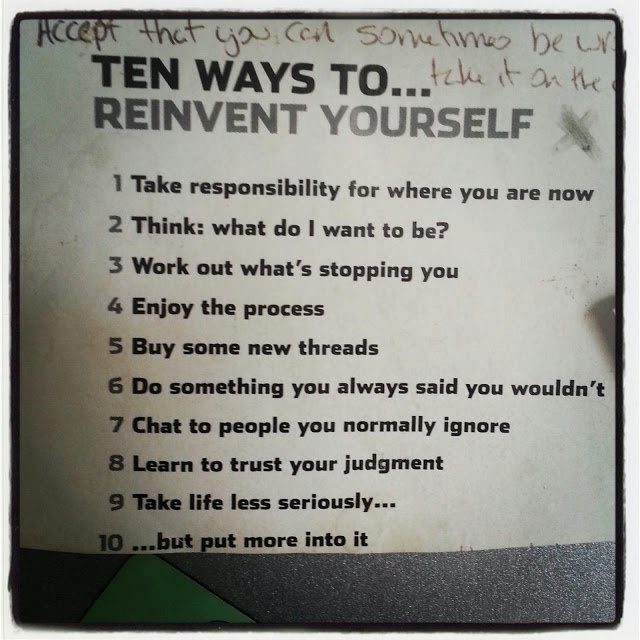 Accept that you can sometimes be
take it on the
TEN WAYS TO...
REINVENT YOURSELF
1 Take responsibility for where you are now
2 Think: what do I want to be?
3 Work out what's stopping you
4 Enjoy the process
5 Buy some new threads
6 Do something you always said you wouldn't
7 Chat to people you normally ignore
8 Learn to trust your judgment
9 Take life less seriously...
10 ...but put more into it